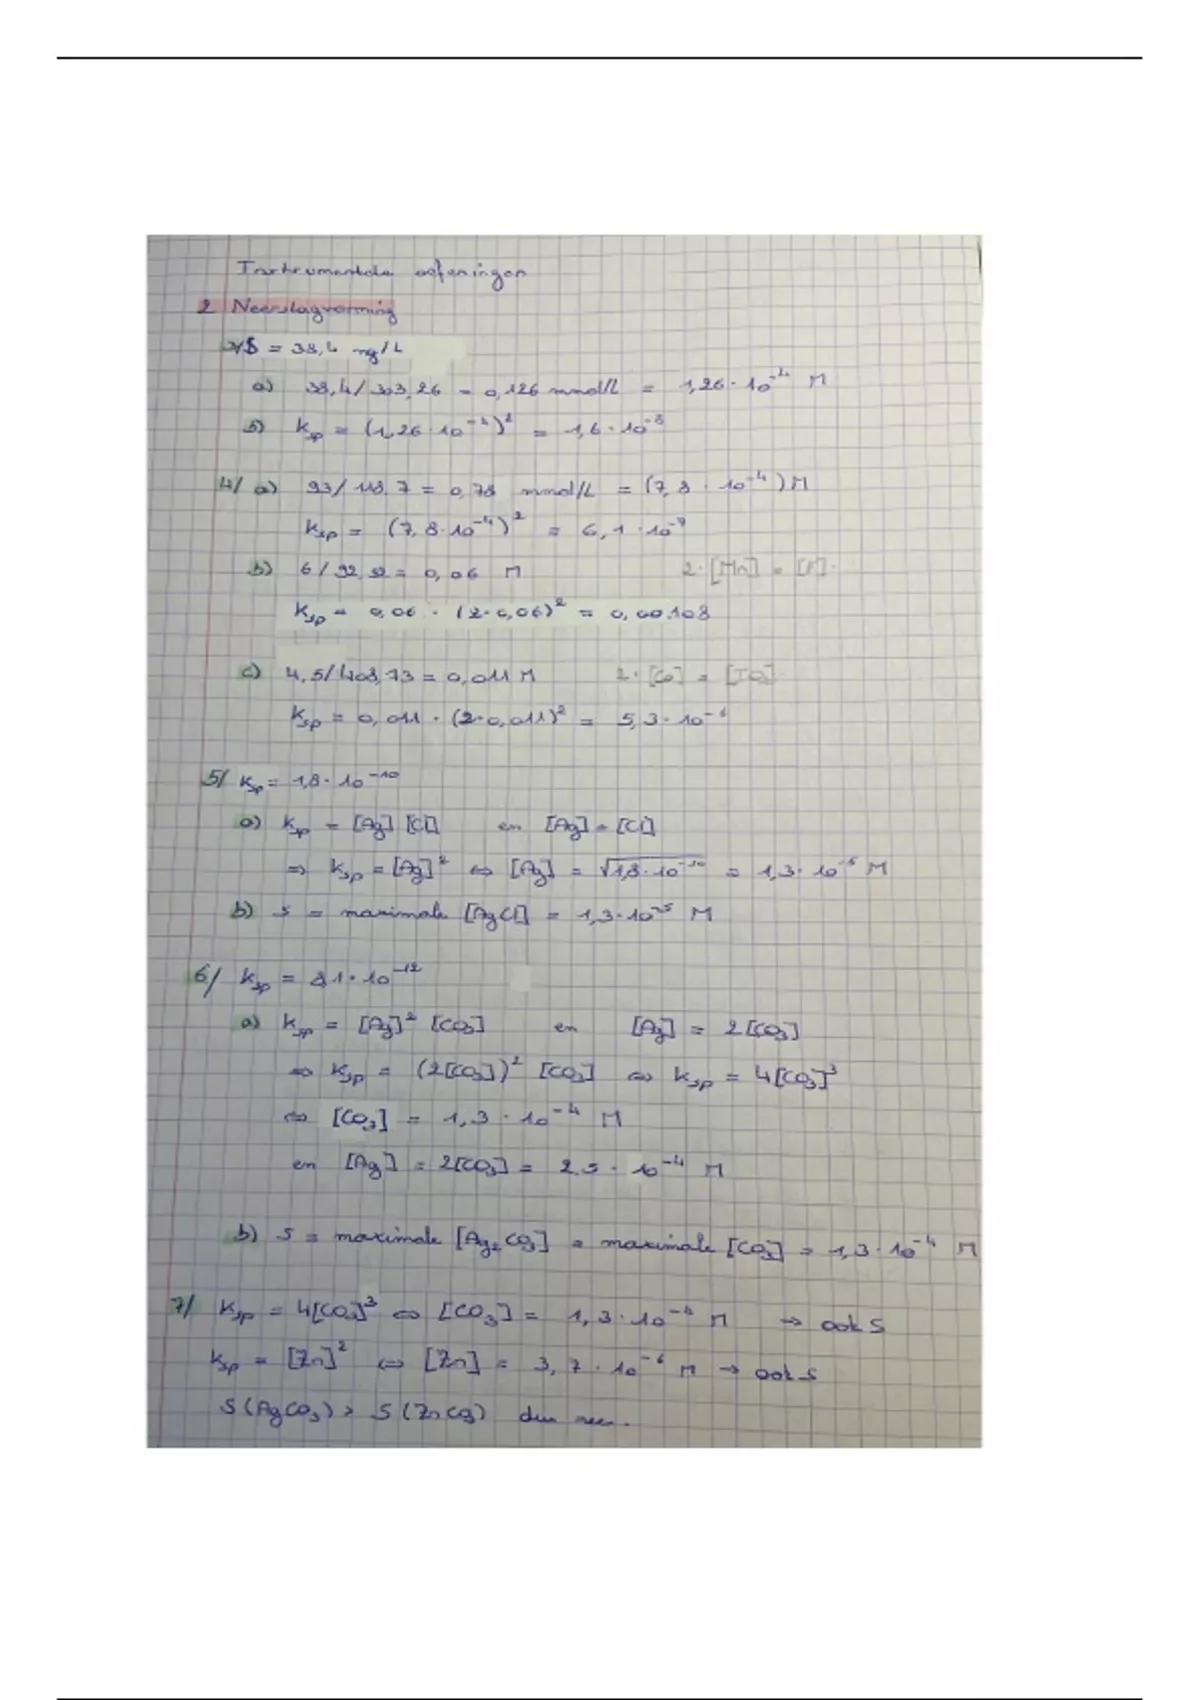 Instrumentele oefeningen
2 Neerslagvorming
3/ S = 38,4 mg/L
a) 38,4/303,26 = 0,126 mmol/L = 1,26 · 10⁻⁴ M
b) Ksp = (1,26 · 10⁻⁴)² = 1,6 · 10⁻⁸
4/ a) 93/118,7 = 0,78 mmol/L = (7,8 · 10⁻⁴) M
Ksp = (7,8 · 10⁻⁴)² = 6,1 · 10⁻⁷
b) 6/92,92 = 0,06 M 2 · [Mn] = [F]
Ksp = 0,06 · (2 · 0,06)² = 0,00108
c) 4,5/408,73 = 0,011 M 2 · [Co] = [IO₃]
Ksp = 0,011 · (2 · 0,011)² = 5,3 · 10⁻⁶
5/ Ksp = 1,8 · 10⁻¹⁰
a) Ksp = [Ag] [Cl] en [Ag] = [Cl]
⇒ Ksp = [Ag]² ⇔ [Ag] = √1,8 · 10⁻¹⁰ = 1,3 · 10⁻⁵ M
b) S = maximale [AgCl] = 1,3 · 10⁻⁵ M
6/ Ksp = 8,1 · 10⁻¹²
a) Ksp = [Ag]² [CO₃] en [Ag] = 2[CO₃]
⇒ Ksp = (2[CO₃])² [CO₃] ⇔ Ksp = 4[CO₃]³
⇔ [CO₃] = 1,3 · 10⁻⁴ M
en [Ag] = 2[CO₃] = 2,5 · 10⁻⁴ M
b) S = maximale [Ag₂CO₃] = maximale [CO₃] = 1,3 · 10⁻⁴ M
7/ Ksp = 4[CO₃]³ ⇔ [CO₃] = 1,3 · 10⁻⁴ M → ook S
Ksp = [Zn]² ⇔ [Zn] = 3,7 · 10⁻⁶ M → ook S
S(AgCO₃) > S(ZnCO₃) dus nee.